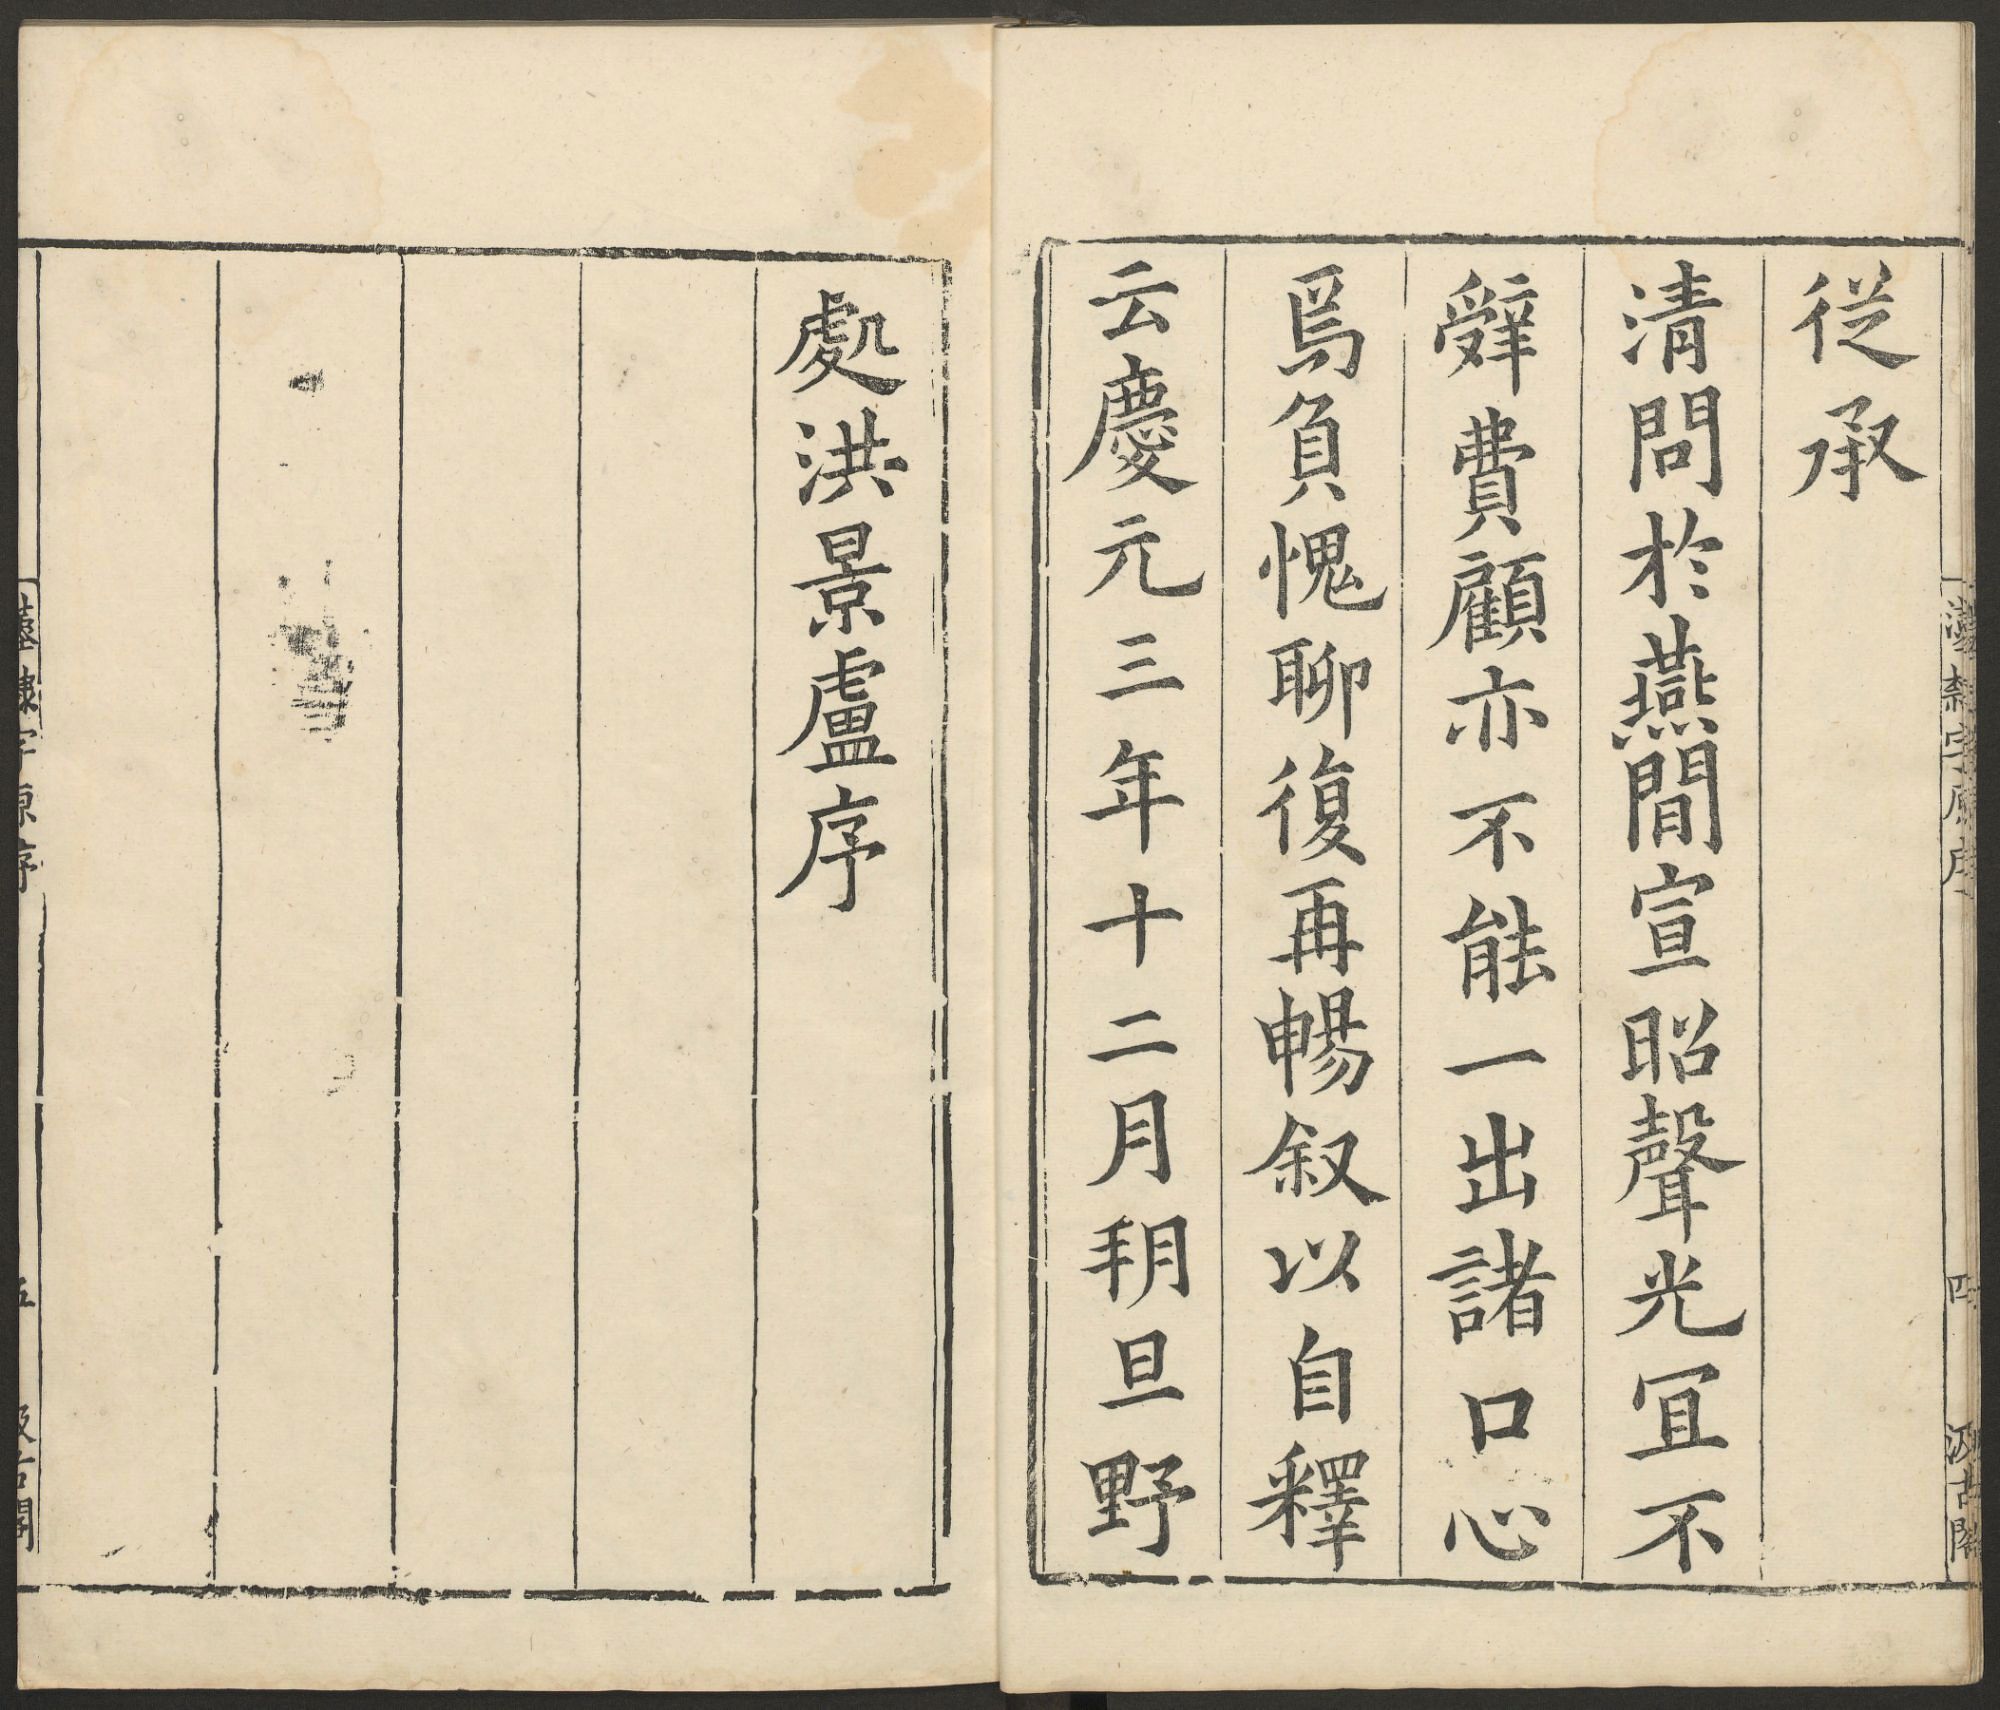 从承
清問於燕閒宣昭聲光宜不
辤費顧亦不能一出諸口心
焉負愧聊復再暢叙以自釋
云慶元三年十二月朔旦野
處洪景盧序
漢隸字原序
四
汲古閣
漢隸字原序
五
汲古閣